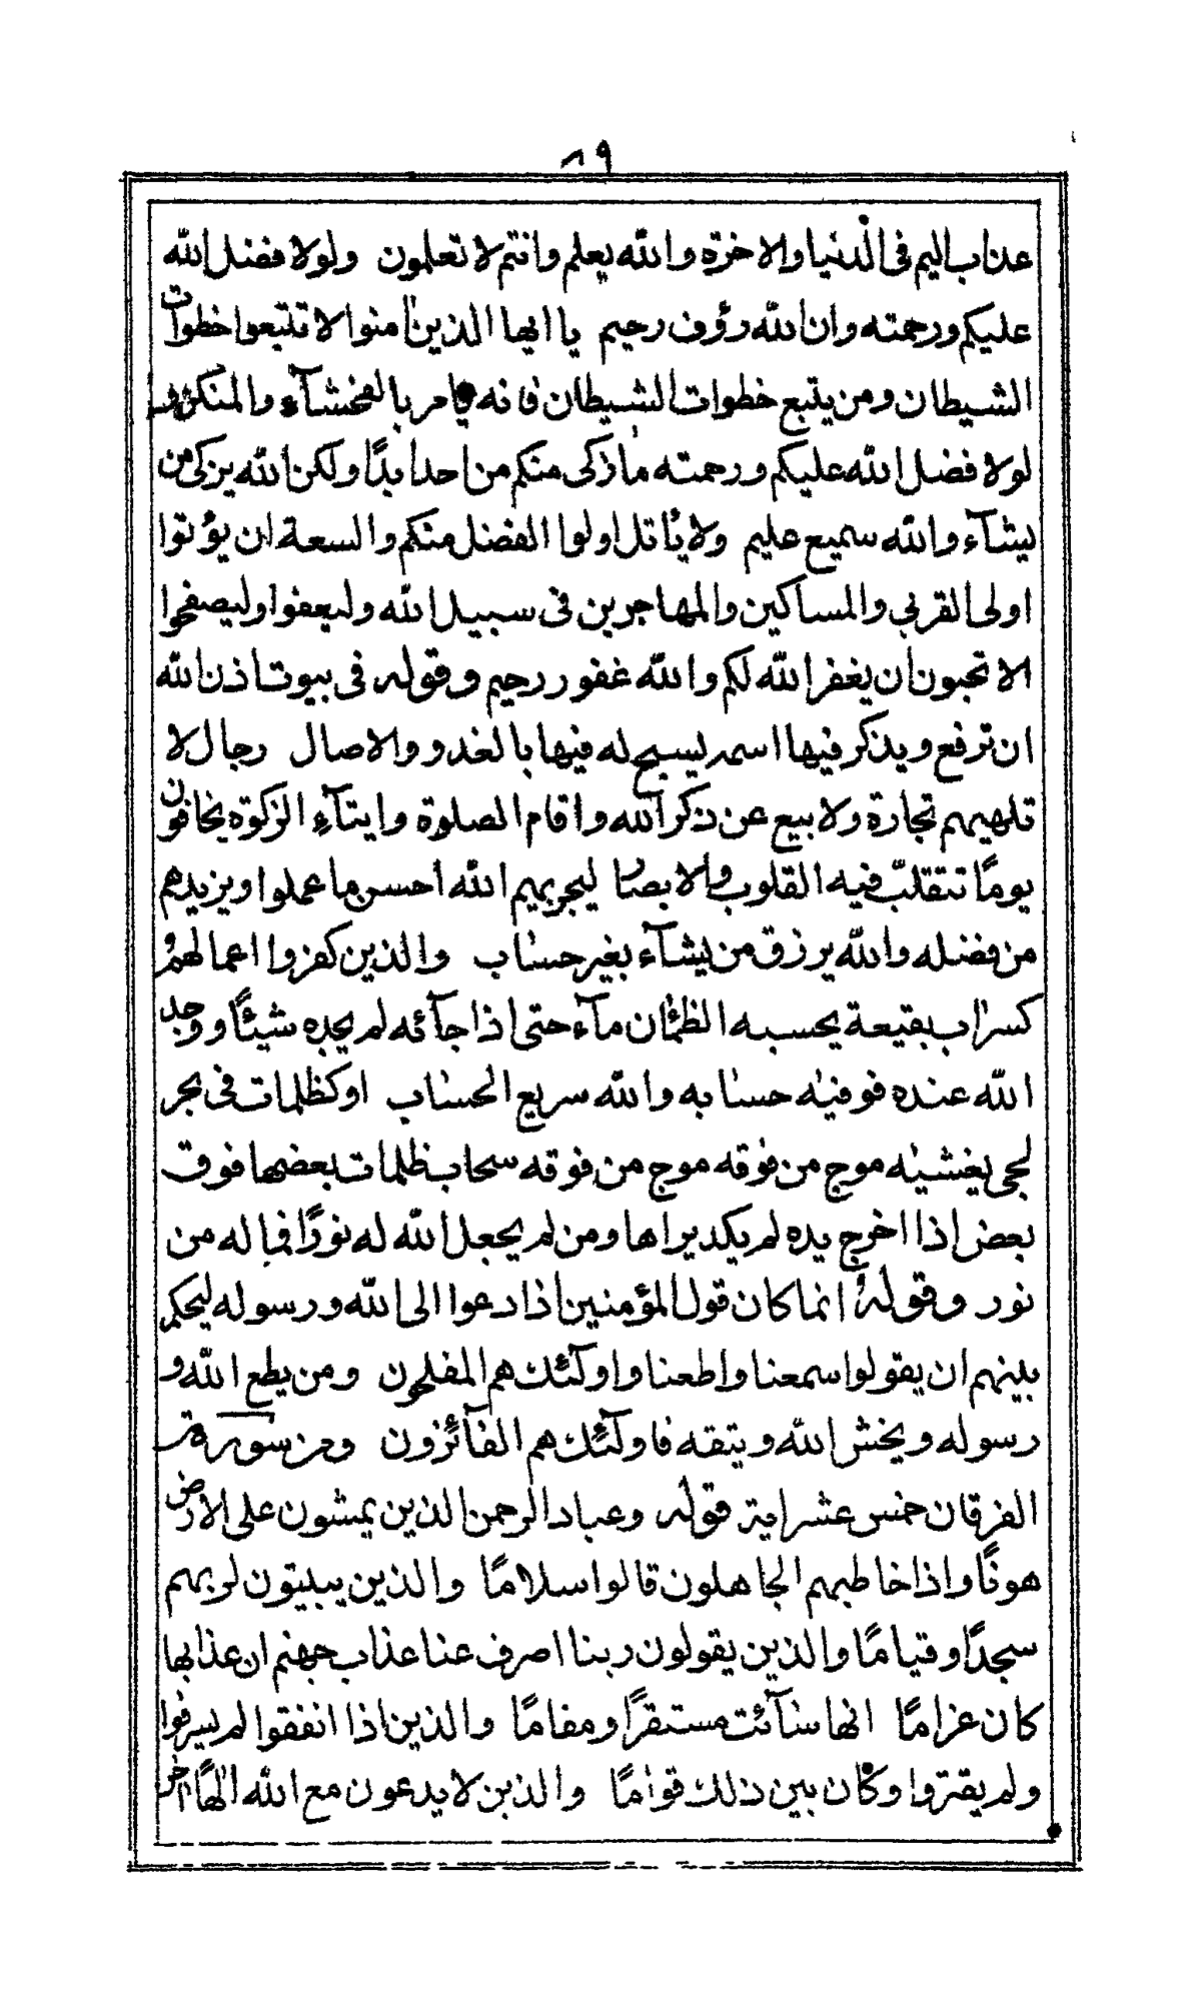 ٨٩
عذاب اليم فى الدنيا والاخرة والله يعلم وانتم لا تعلمون ولولا فضل الله
عليكم ورحمته وان الله رؤف رحيم يا ايها الذين امنوا لا تتبعوا خطوات
الشيطان ومن يتبع خطوات الشيطان فانه يامر بالفحشآء والمنكر و
لولا فضل الله عليكم ورحمته ما زكى منكم من احد ابدًا ولكن الله يزكى من
يشآء والله سميع عليم ولا يأتل اولوا الفضل منكم والسعة ان يؤتوا
اولى القربى والمساكين والمهاجرين فى سبيل الله وليعفوا وليصفحوا
الا تحبون ان يغفر الله لكم والله غفور رحيم وقوله فى بيوت اذن الله
ان ترفع ويذكر فيها اسمه يسبح له فيها بالغدو والاصال رجال لا
تلهيهم تجارة ولا بيع عن ذكر الله واقام الصلوة وايتآءِ الزكوة يخافون
يومًا تتقلب فيه القلوب والابصار ليجزيهم الله احسن ما عملوا ويزيدهم
من فضله والله يرزق من يشآء بغير حساب والذين كفروا اعمالهم
كسراب بقيعة يحسبه الظمٰان مآء حتى اذا جآئه لم يجده شيئًا ووجد
الله عنده فوفيٰه حسابه والله سريع الحساب او كظلمات فى بحر
لجى يغشيٰه موج من فوقه موج من فوقه سحاب ظلمات بعضها فوق
بعض اذا اخرج يده لم يكد يراها ومن لم يجعل الله له نورًا فما له من
نور وقوله انما كان قول المؤمنين اذا دعوا الى الله ورسوله ليحكم
بينهم ان يقولوا سمعنا واطعنا واولٓئك هم المفلحون ومن يطع الله و
رسوله ويخش الله ويتقه فاولٓئك هم الفآئزون ومن سورة
الفرقان خمس عشر اية قوله وعباد الرحمن الذين يمشون على الارض
هونًا واذا خاطبهم الجاهلون قالوا سلامًا والذين يبيتون لربهم
سجدًا وقيامًا والذين يقولون ربنا اصرف عنا عذاب جهنم ان عذابها
كان غرامًا انها سآئت مستقرًا ومقامًا والذين اذا انفقوا لم يسرفوا
ولم يقتروا وكان بين ذلك قوامًا والذين لا يدعون مع الله الٰهًا اخر